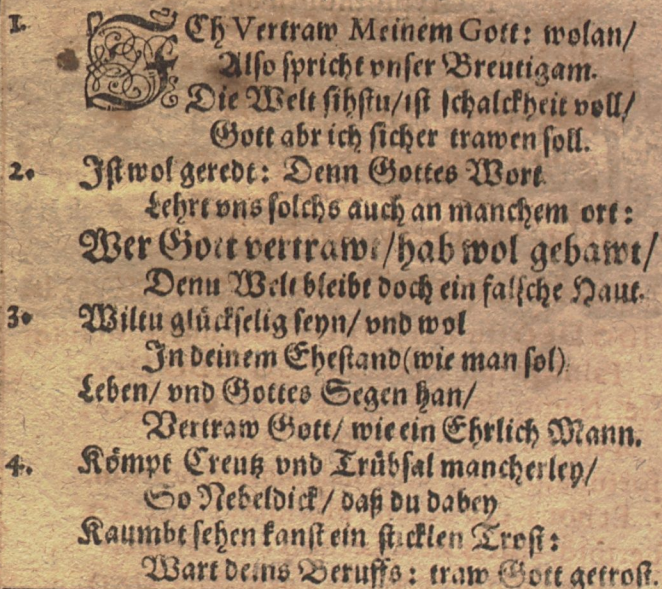 1. ICh Vertraw Meinem Gott: wolan/
Also spricht vnser Breutigam.
Die Welt sihstu/ist schalckheit voll/
Gott abr ich sicher trawen soll.
2. Ist wol geredt: Denn Gottes Wort
Lehrt vns solchs auch an manchem ort:
Wer Gott vertrawt/hab wol gebawt/
Denn Welt bleibt doch ein falsche Haut.
3. Wiltu glückselig seyn/ vnd wol
In deinem Ehestand(wie man sol)
Leben/ vnd Gottes Segen han/
Vertraw Gott/ wie ein Ehrlich Mann.
4. Kömpt Creutz vnd Trübsal mancherley/
So Nebeldick/ daß du dabey
Kaumbt sehen kanst ein stücklen Trost:
Wart deins Beruffs: traw Gott getrost.